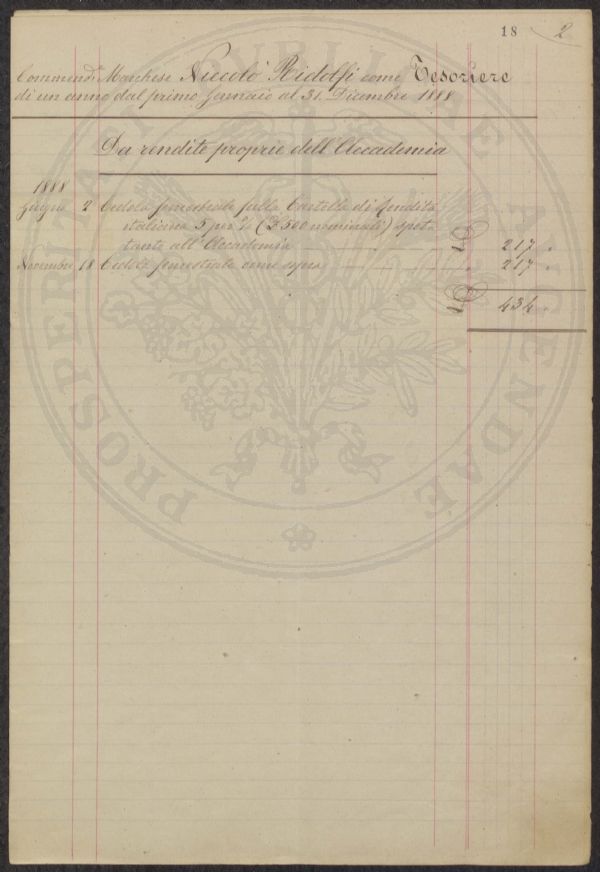 18 2
Commend. Marchese Niccolò Ridolfi come Tesoriere
di un anno dal primo Gennaio al 31. Dicembre 1888
Da rendite proprie dell'Accademia
1888
Giugno 2 Cedola semestrale sulla Cartella di Rendita
italiana 5 per % (£ 500 nominali) spet-
tante all'Accademia £ 217 "
Novembre 18 Cedola semestrale come sopra " 217 "
£ 434 "
PROSPERITATI PUBLICAE AUGENDAE